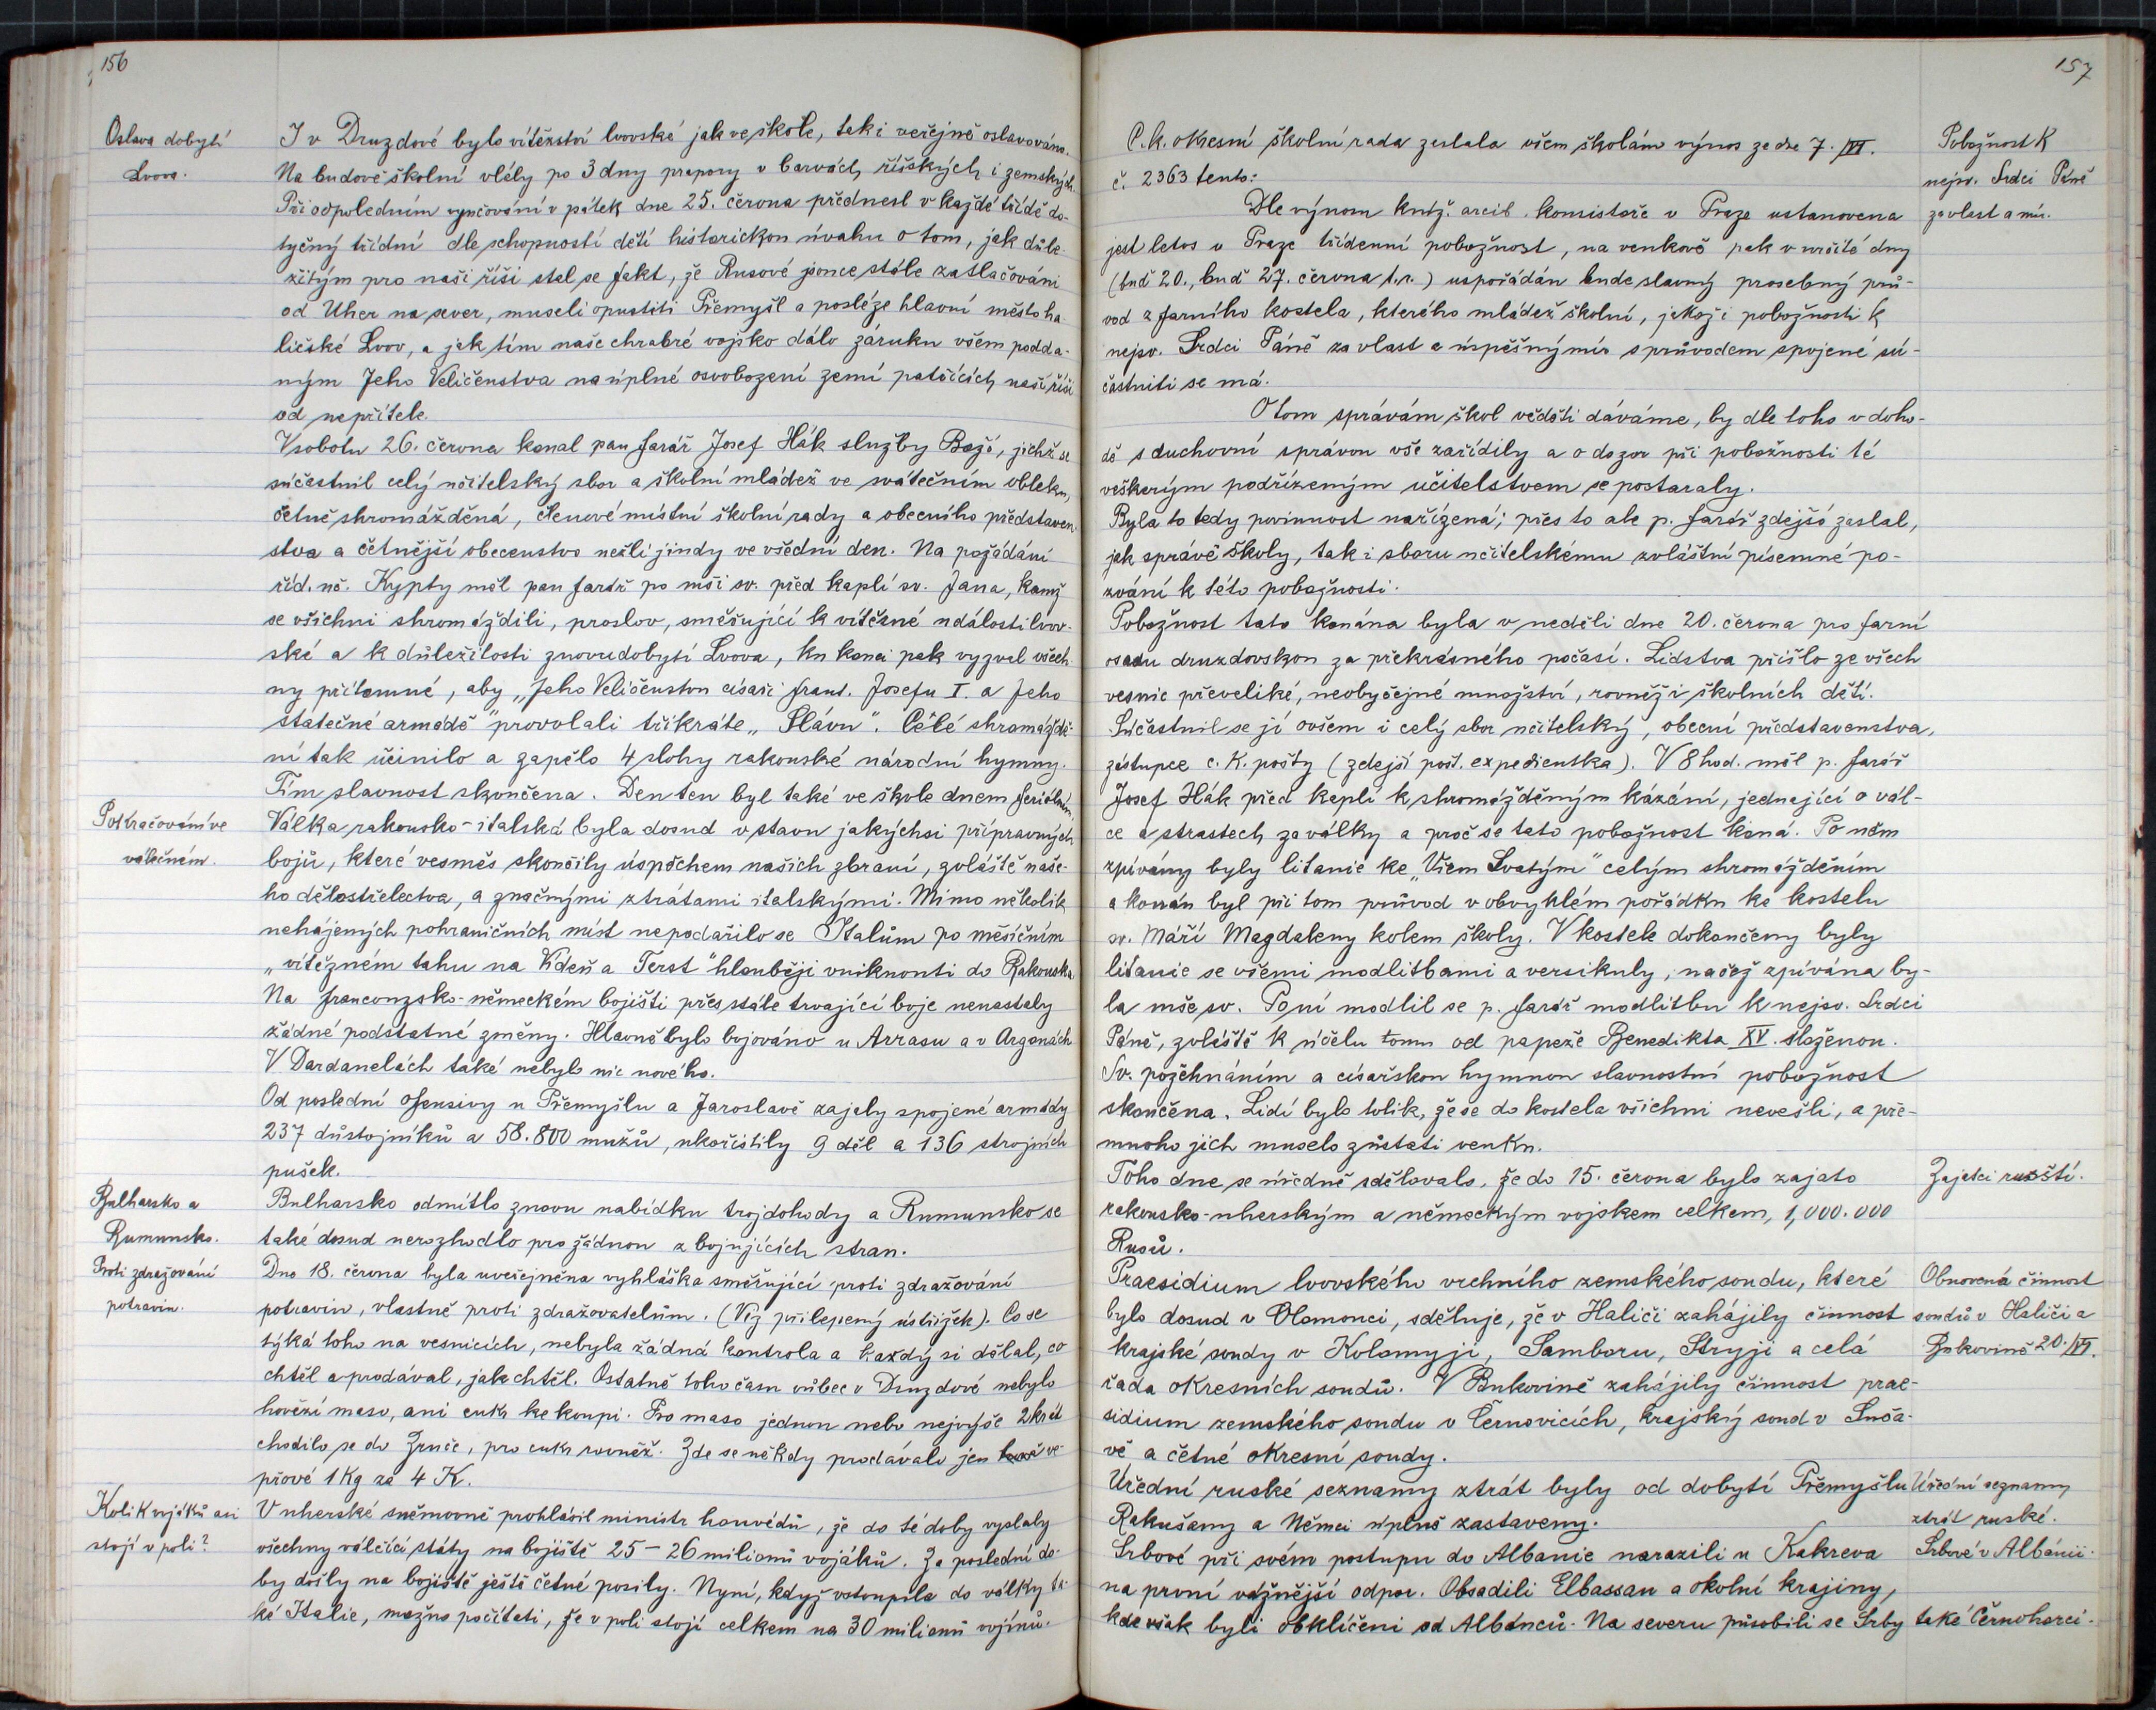 156
Oslava dobytí
Lvova.
I v Druzdové bylo vítězství lvovské jak ve škole, tak i veřejně oslavováno.
Na budově školní vlály po 3 dny prapory v barvách říšských i zemských.
Při odpoledním vyučování v pátek dne 25. června přednesl v každé třídě do-
tyčný třídní dle schopností dětí historickou úvahu o tom, jak důle-
žitým pro naši říši stal se fakt, že Rusové jsouce stále zatlačováni
od Uher na sever, museli opustiti Přemyšl a posléze hlavní město ha-
ličské Lvov, a jak tím naše chrabré vojsko dálo záruku všem podda-
ným Jeho Veličenstva na úplné osvobození zemí patřících naší říši
od nepřítele.
V sobotu 26. června konal pan farář Josef Hák služby Boží, jichž se
súčastnil celý učitelský sbor a školní mládež ve svátečním obleku,
četně shromážděná, členové místní školní rady a obecního představen-
stva a četnější obecenstvo nežli jindy ve všední den. Na požádání
říd. uč. Kypty měl pan farář po mši sv. před kaplí sv. Jana, kamž
se všichni shromáždili, proslov, směřující k vítězné události lvov-
ské a k důležitosti znovudobytí Lvova, ku konci pak vyzval všech-
ny přítomné, aby „Jeho Veličenstvu císaři Frant. Josefu I. a Jeho
statečné armádě" provolali třikráte „Slávu". Célé shromáždě-
ní tak učinilo a zapělo 4 slohy rakouské národní hymny.
Tím slavnost skončena. Den ten byl také ve škole dnem feriálním.
Pokračování ve
válečném.
Válka rakousko-italská byla dosud v stavu jakýchsi přípravných
bojů, které vesměs skončily úspěchem našich zbraní, zvláště naše-
ho dělostřelectva, a značnými ztrátami italskými. Mimo několik
nehájených pohraničních míst nepodařilo se Italům po měsíčním
„vítězném tahu na Vídeň a Terst" hlouběji vniknouti do Rakouska.
Na francouzsko-německém bojišti přes stále trvající boje nenastaly
žádné podstatné změny. Hlavně bylo bojováno u Arrasu a v Argonách
V Dardanelách také nebylo nic nového.
Od poslední ofensivy u Přemyšlu a Jaroslavě zajaly spojené armády
237 důstojníků a 58.800 mužů, ukořistily 9 děl a 136 strojních
pušek.
Bulharsko a
Rumunsko.
Bulharsko odmítlo znovu nabídku trojdohody a Rumunsko se
také dosud nerozhodlo pro žádnou z bojujících stran.
Proti zdražování
potravin.
Dne 18. června byla uveřejněna vyhláška směřující proti zdražování
potravin, vlastně proti zdražovatelům. (Viz přilepený ústřižek). Co se
týká toho na vesnicích, nebyla žádná kontrola a každý si dělal, co
chtěl a prodával, jak chtěl. Ostatně toho času vůbec v Druzdové nebylo
hovězí maso, ani cukr ke koupi. Pro maso jednou nebo nejvýše 2krát
chodilo se do Zruče, pro cukr rovněž. Zde se někdy prodávalo jen ve-
přové 1 Kg za 4 K.
Kolik vojáků asi
stojí v poli?
V uherské sněmovně prohlásil ministr honvédů, že do té doby vyslaly
všechny válčící státy na bojiště 25–26 milionů vojáků. Za poslední do-
by došly na bojiště ještě četné posily. Nyní, když vstoupila do války ta-
ké Italie, možno počítati, že v poli stojí celkem na 30 milionů vojínů.
157
C. k. okresní školní rada zaslala všem školám výnos ze dne 7./VI.
č. 2363 tento:
Pobožnost k
nejsv. Srdci Páně
za vlast a mír.
Dle výnosu kníž. arcib. konsistoře v Praze ustanovena
jest letos v Praze třídenní pobožnost, na venkově pak v určité dny
(buď 20., buď 27. června t. r.) uspořádán bude slavný prosebný prů-
vod z farního kostela, kterého mládež školní, jakož i pobožnosti k
nejsv. Srdci Páně za vlast a úspěšný mír s průvodem spojené sú-
častniti se má.
O tom správám škol věděti dáváme, by dle toho v doho-
dě s duchovní správou vše zařídily a o dozor při pobožnosti té
veškerým podřízeným učitelstvem se postaraly.
Byla to tedy povinnost nařízená; přes to ale p. farář zdejší zaslal,
jak správě školy, tak i sboru učitelskému zvláštní písemné po-
zvání k této pobožnosti.
Pobožnost tato konána byla v neděli dne 20. června pro farní
osadu druzdovskou za překrásného počasí. Lidstva přišlo ze všech
vesnic převeliké, neobyčejné množství, rovněž i školních dětí.
Súčastnil se jí ovšem i celý sbor učitelský, obecní představenstva,
zástupce c. k. pošty (zdejší pošt. expedientka). V 8 hod. měl p. farář
Josef Hák před kaplí k shromážděným kázání, jednající o vál-
ce a strastech za války a proč se tato pobožnost koná. Po něm
zpívány byly litanie ke „Všem Svatým" celým shromážděním
a konán byl při tom průvod v obvyklém pořádku ke kostelu
sv. Máří Magdaleny kolem školy. V kostele dokončeny byly
litanie se všemi modlitbami a versikuly, načež zpívána by-
la mše sv. Po ní modlil se p. farář modlitbu k nejsv. Srdci
Páně, zvláště k účelu tomu od papeže Benedikta XV. složenou.
Sv. požehnáním a císařskou hymnou slavnostní pobožnost
skončena. Lidí bylo tolik, že se do kostela všichni nevešli, a pře-
mnoho jich muselo zůstati venku.
Toho dne se úředně sdělovalo, že do 15. června bylo zajato
Zajatci ruští.
rakousko-uherským a německým vojskem celkem 1,000.000
Rusů.
Praesidium lvovského vrchního zemského soudu, které
Obnovená činnost
soudů v Haliči a
Bukovině 20./VI.
bylo dosud v Olomouci, sděluje, že v Haliči zahájily činnost
krajské soudy v Kolomyji, Samboru, Stryji a celá
řada okresních soudů. V Bukovině zahájily činnost prae-
sidium zemského soudu v Černovicích, krajský soud v Suča-
vě a četné okresní soudy.
Úřední ruské seznamy ztrát byly od dobytí Přemyšlu
Úřední seznamy
ztrát ruské.
Rakušany a Němci úplně zastaveny.
Srbové při svém postupu do Albanie narazili u Kakreva
Srbové v Albánii.
na první vážnější odpor. Obsadili Elbassan a okolní krajiny,
kde však byli obklíčeni od Albánců. Na severu působili se Srby také Černohorci.